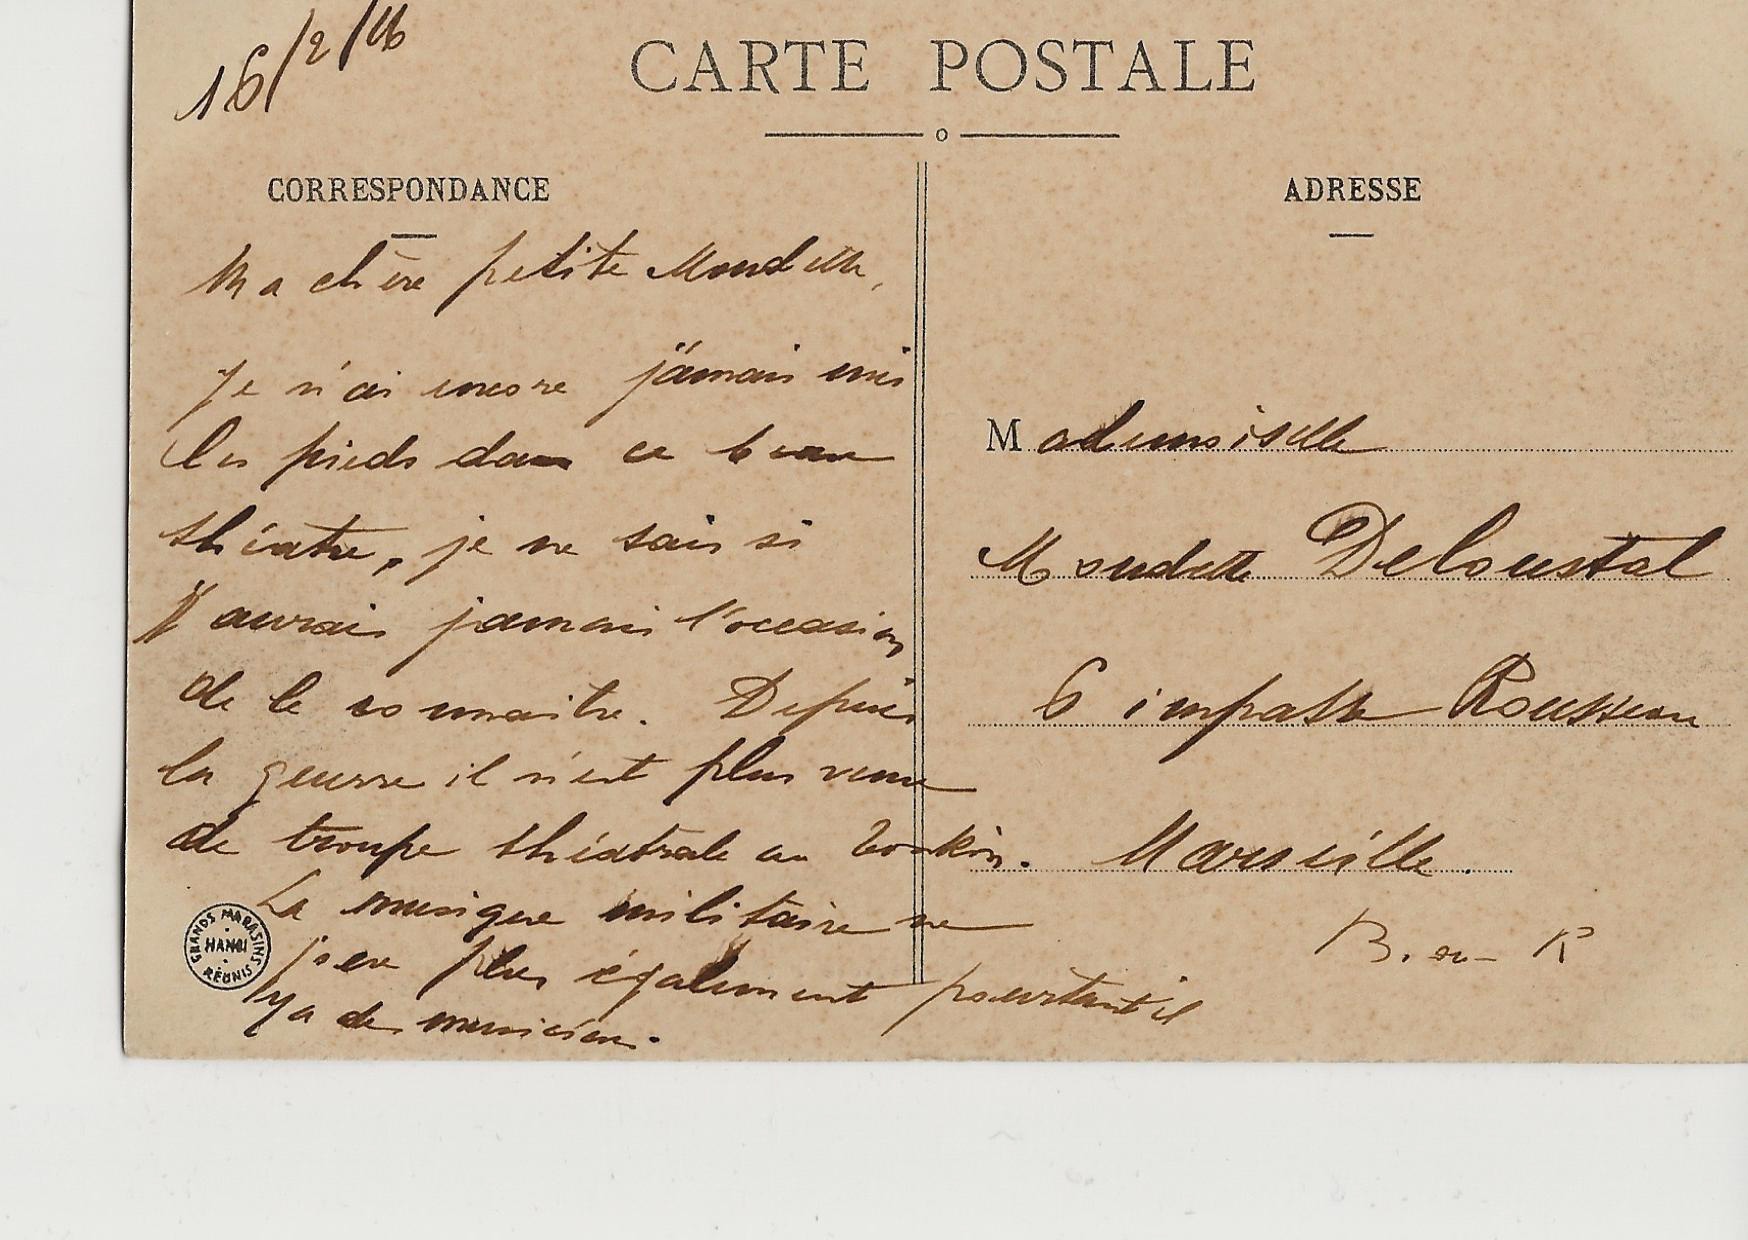 16/2/16
CARTE POSTALE
CORRESPONDANCE
Ma chère petite Moudette,
Je n'ai encore jamais mis
les pieds dans ce beau
théatre, je ne sais si
j'aurais jamais l'occasion
de le connaitre. Depuis
la guerre il n'est plus venu
de troupe théatrale au Tonkin.
La musique militaire ne
joue plus également pourtant il
y a des musiciens.
GRANDS MAGASINS
HANOI
RÉUNIS
ADRESSE
Mademoiselle
Moudette Deloustal
6 impasse Rousseau
Marseille.
B. du R